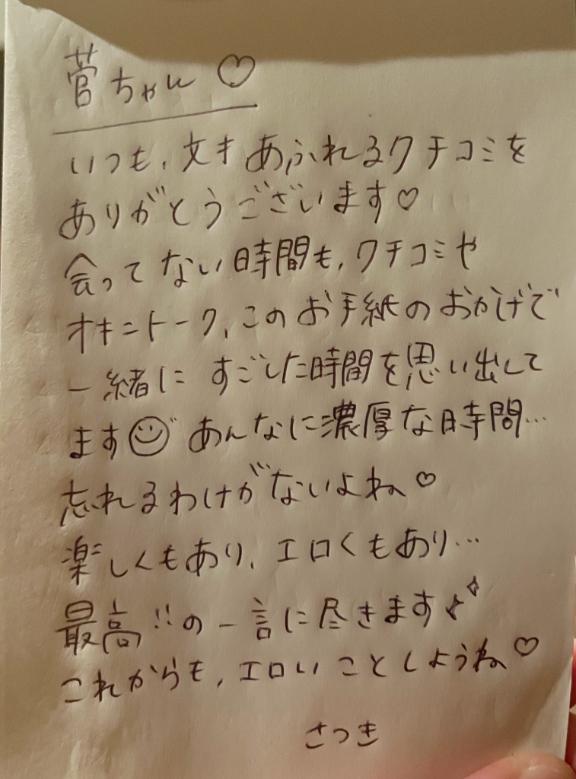 菅ちゃん♡
いつも、文才あふれるクチコミを
ありがとうございます♡
会ってない時間も、クチコミや
オキニトーク、このお手紙のおかげで
一緒にすごした時間を思い出して
ます☺ あんなに濃厚な時間…
忘れるわけがないよね♡
楽しくもあり、エロくもあり…
最高!!の一言に尽きます♪
これからも、エロいことしようね♡
さつき